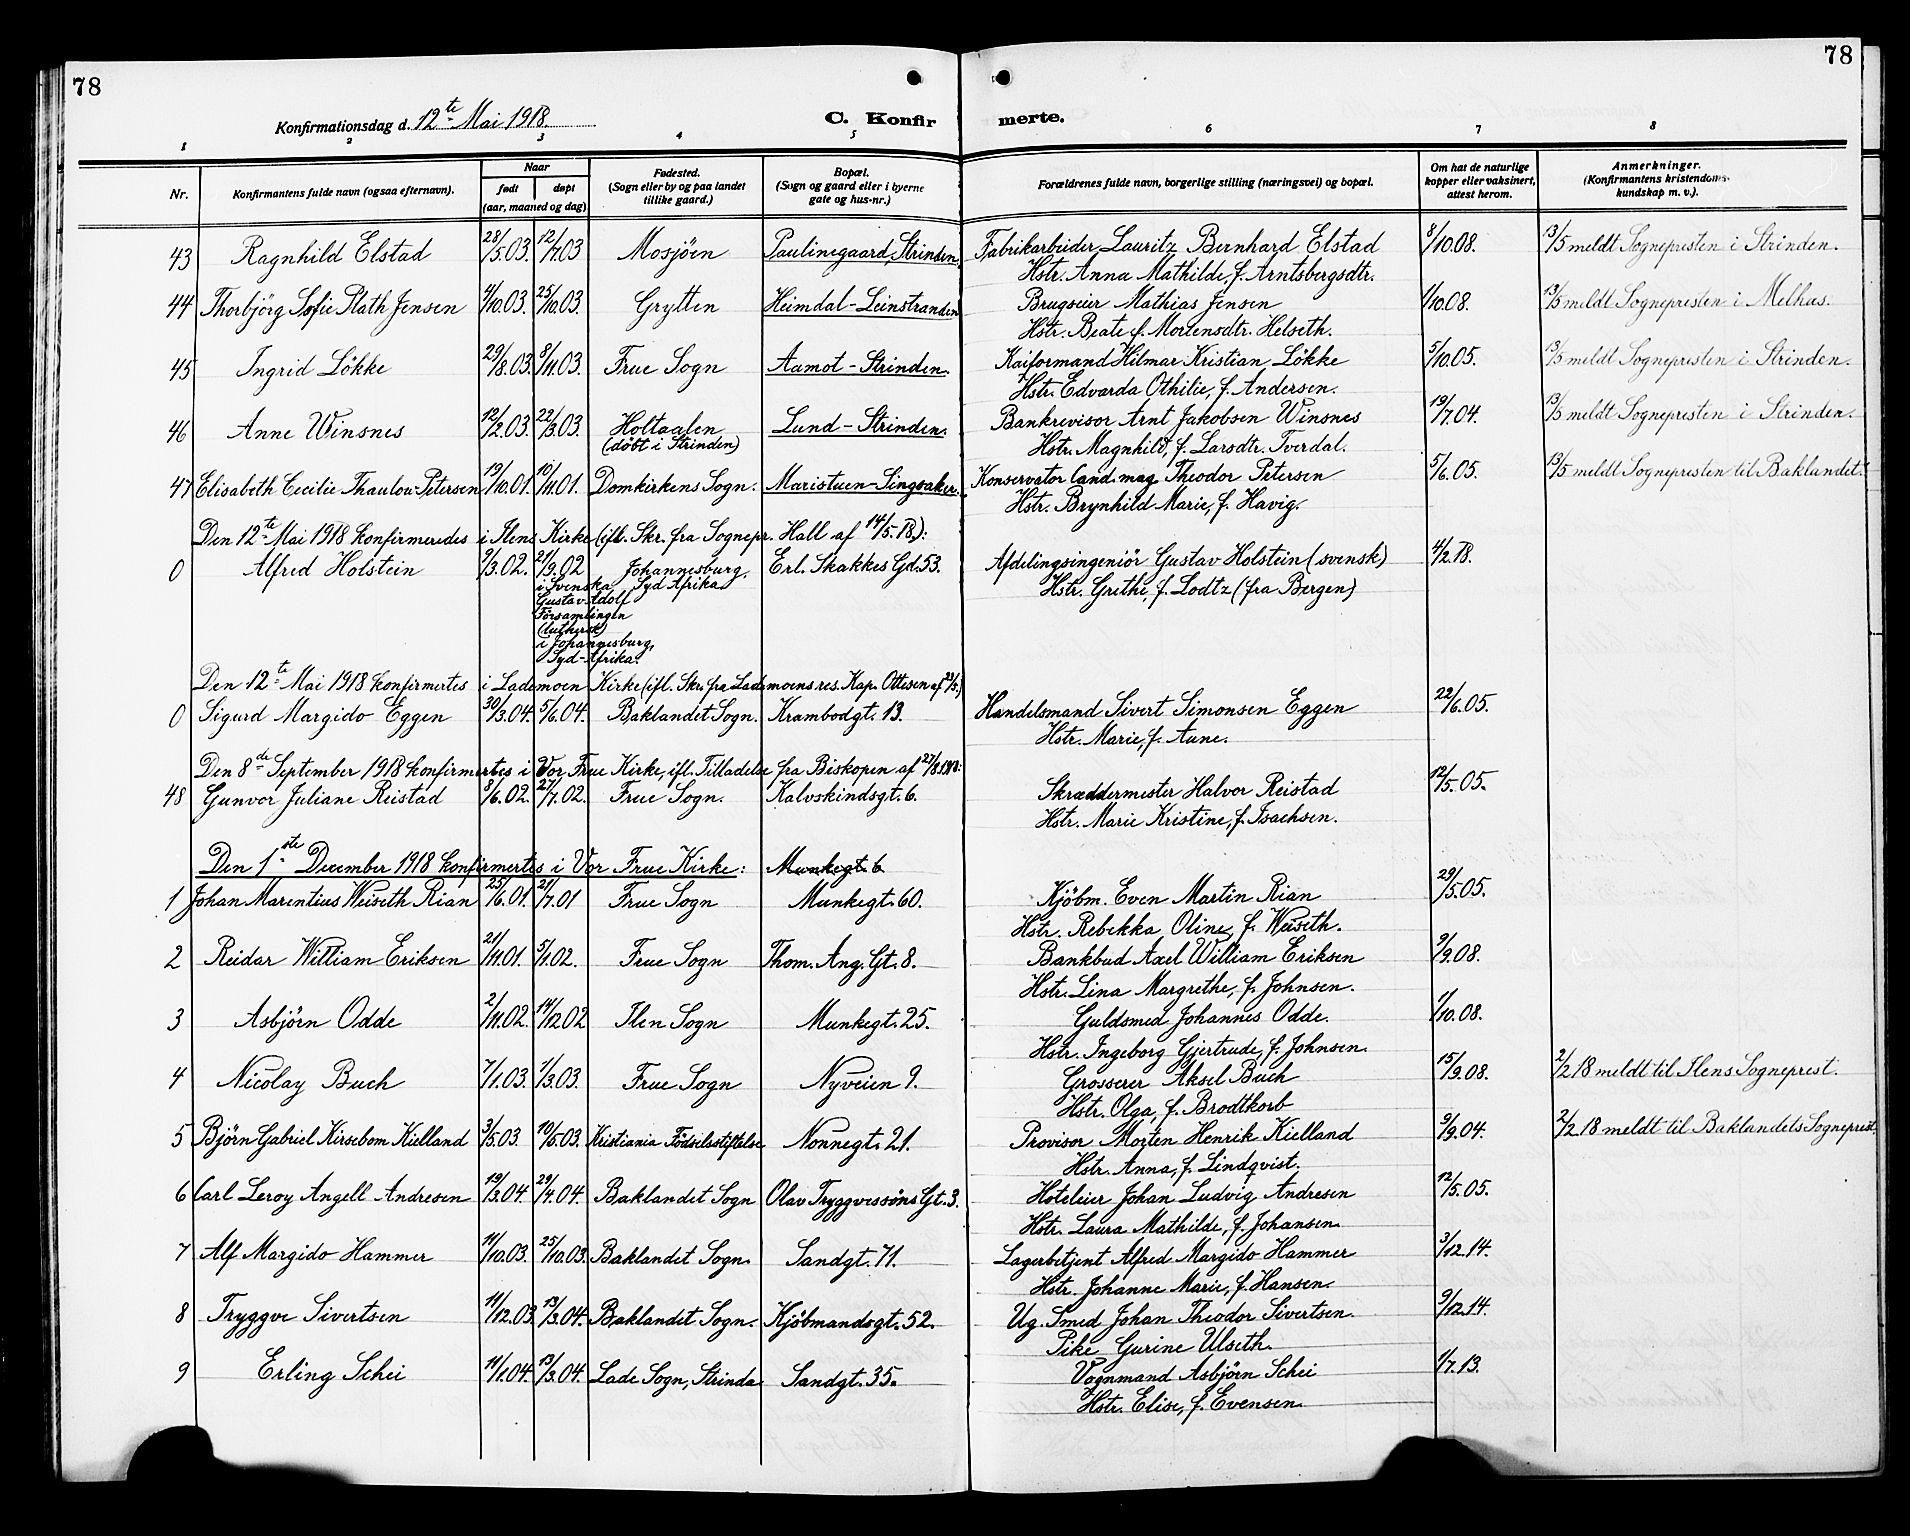 78
78
Konfirmationsdag d. 12te Mai 1918.
C. Konfirmerte.
1 2 3 4 5 6 7 8
Nr.
Konfirmantens fulde navn (ogsaa efternavn).
Naar
født
døpt
(aar, maaned og dag)
Fødested.
(Sogn eller by og paa landet
tillike gaard.)
Bopæl.
(Sogn og gaard eller i byerne
gate og hus-nr.)
Forældrenes fulde navn, borgerlige stilling (næringsvei) og bopæl.
Om hat de naturlige
kopper eller vaksinert,
attest herom.
Anmerkninger.
(Konfirmantens kristendoms-
kundskap m. v.)
43 Ragnhild Elstad 28/5.03. 12/7.03 Mosjöen Paulinegaard, Strinden, Fabrikarbeider Lauritz Bernhard Elstad 8/10.08. 13/5 meldt Sognepresten i Strinden.
Hstr. Anna Mathilde, f. Arntsbergsdtr.
44 Thorbjörg Sofie Plath Jensen 4/10.03. 25/10.03. Grytten Heimdal-Leinstranden Brugseier Mathias Jensen 1/10.08. 13/5 meldt Sognepresten i Melhus.
Hstr. Beate, f. Mortensdtr. Helseth.
45 Ingrid Lökke 29/8.03. 8/11.03. Frue Sogn Aamot-Strinden. Kaiformand Hilmar Kristian Lökke 5/10.05. 13/5 meldt Sognepresten i Strinden.
Hstr. Edvarda Othilie, f. Andersen.
46 Anne Winsnes 12/2.03. 22/3.03. Holtaalen Lund-Strinden. Bankrevisor Arnt Jakobsen Winsnes 19/7.04. 13/5 meldt Sognepresten i Strinden.
(döbt i Strinden) Hstr. Magnhild, f. Larsdtr. Tverdal.
47 Elisabeth Cecilie Thaulow Petersen 19/10.01. 10/11.01. Domkirkens Sogn. Maristuen-Singsaker. Konservator Cand. mag Theodor Petersen 5/6.05. 13/5 meldt Sognepresten til Baklandet.
Hstr. Brynhild Marie, f. Havig.
Den 12te Mai 1918 konfirmeredes i Ilens Kirke (ifl. Skr. fra Sognepr. Hall af 14/5.18.):
0 Alfred Holstein 9/3.02. 21/9.02 Johannesburg, Erl. Skakkes Gd. 53. Afdelingsingeniör Gustav Holstein (svensk) 4/2.18.
i Svenska Syd Afrika Hstr. Grethe, f. Lodtz (fra Bergen)
Gustav-Adolf
Församlingen
(luthersk)
i Johannesburg,
Syd-Afrika.
Den 12te Mai 1918 konfirmertes i Lademoen Kirke (ifl. Skr. fra Lademoens res. Kap. Ottesen af 21/5.)
0 Sigurd Margido Eggen 30/3.04. 5/6.04. Baklandet Sogn. Krambodgt. 13. Handelsmand Sivert Simonsen Eggen 22/6.05.
Hstr. Marie, f. Aune.
Den 8de September 1918 konfirmertes i Vor Frue Kirke, ifl. Tilladelse fra Biskopen af 27/8.1918:
48 Gunvor Juliane Reistad 8/6.02. 27/7.02. Frue Sogn. Kalvskindsgt. 6. Skræddermester Halvor Reistad 12/5.05.
Hstr. Marie Kristine, f. Isachsen.
Den 1ste December 1918 konfirmertes i Vor Frue Kirke: Munkegt. 6
1 Johan Marentius Weiseth Rian 25/6.01. 21/7.01 Frue Sogn Munkegt. 60. Kjöbm. Even Martin Rian 29/5.05.
Hstr. Rebekka Oline, f. Weiseth.
2 Reidar William Eriksen 21/11.01. 5/1.02. Frue Sogn Thom. Ang. Gt. 8. Bankbud Axel William Eriksen 9/9.08.
Hstr. Lina Margrethe, f. Johnsen.
3 Asbjörn Odde 2/11.02. 14/12 02 Ilen Sogn Munkegt. 25. Guldsmed Johannes Odde. 1/10.08.
Hstr. Ingeborg Gjertrude, f. Johnsen.
4 Nicolay Buch 7/1.03. 1/3.03. Frue Sogn Nyveien 9. Grosserer Aksel Buch 15/9.08. 2/12 18 meldt til Ilens Sogneprest.
Hstr. Olga, f. Brodtkorb
5 Björn Gabriel Kirsebom Kielland 3/5.03. 19/5.03. Kristiania Födselsstiftelse Nonnegt. 21. Provisor Morten Henrik Kielland 9/9.04. 2/12 18 meldt til Baklandets Sogneprest.
Hstr. Anna, f. Lindqvist.
6 Carl Leroy Angell Andresen 19/3.04. 24/4.04. Baklandet Sogn Olav Tryggvessöns Gt. 3. Hoteleier Johan Ludvig Andresen 12/5.05.
Hstr. Laura Mathilde, f. Johansen.
7 Alf Margido Hammer 11/10.03. 25/10.03. Baklandet Sogn. Sandgt. 71. Lagerbetjent Alfred Margido Hammer 3/12.14.
Hstr. Johanne Marie, f. Hansen.
8 Tryggve Sivertsen 11/12.03. 13/3.04. Baklandet Sogn. Kjöbmandsgt. 52. Ug. Smed Johan Theodor Sivertsen. 9/12.14.
Pike Gurine Ulseth.
9 Erling Schei 11/1.04. 13/3.04. Lade Sogn, Strinda Sandgt. 35. Vognmand Asbjörn Schei 1/7.13.
Hstr. Elise, f. Evensen.